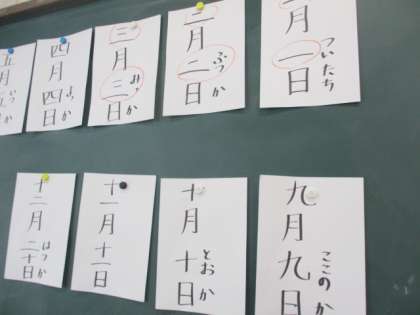 月一日
ついたち
二月二日
ふつか
三月三日
みっか
四月四日
よっか
五月五
いつか
九月九日
ここのか
十月十日
とおか
十一月十一日
十二月二十日
はつか